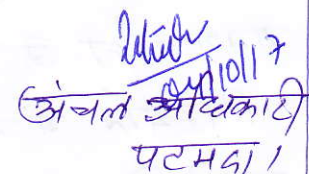 10/17
अंचल अधिकारी
पटमदा।